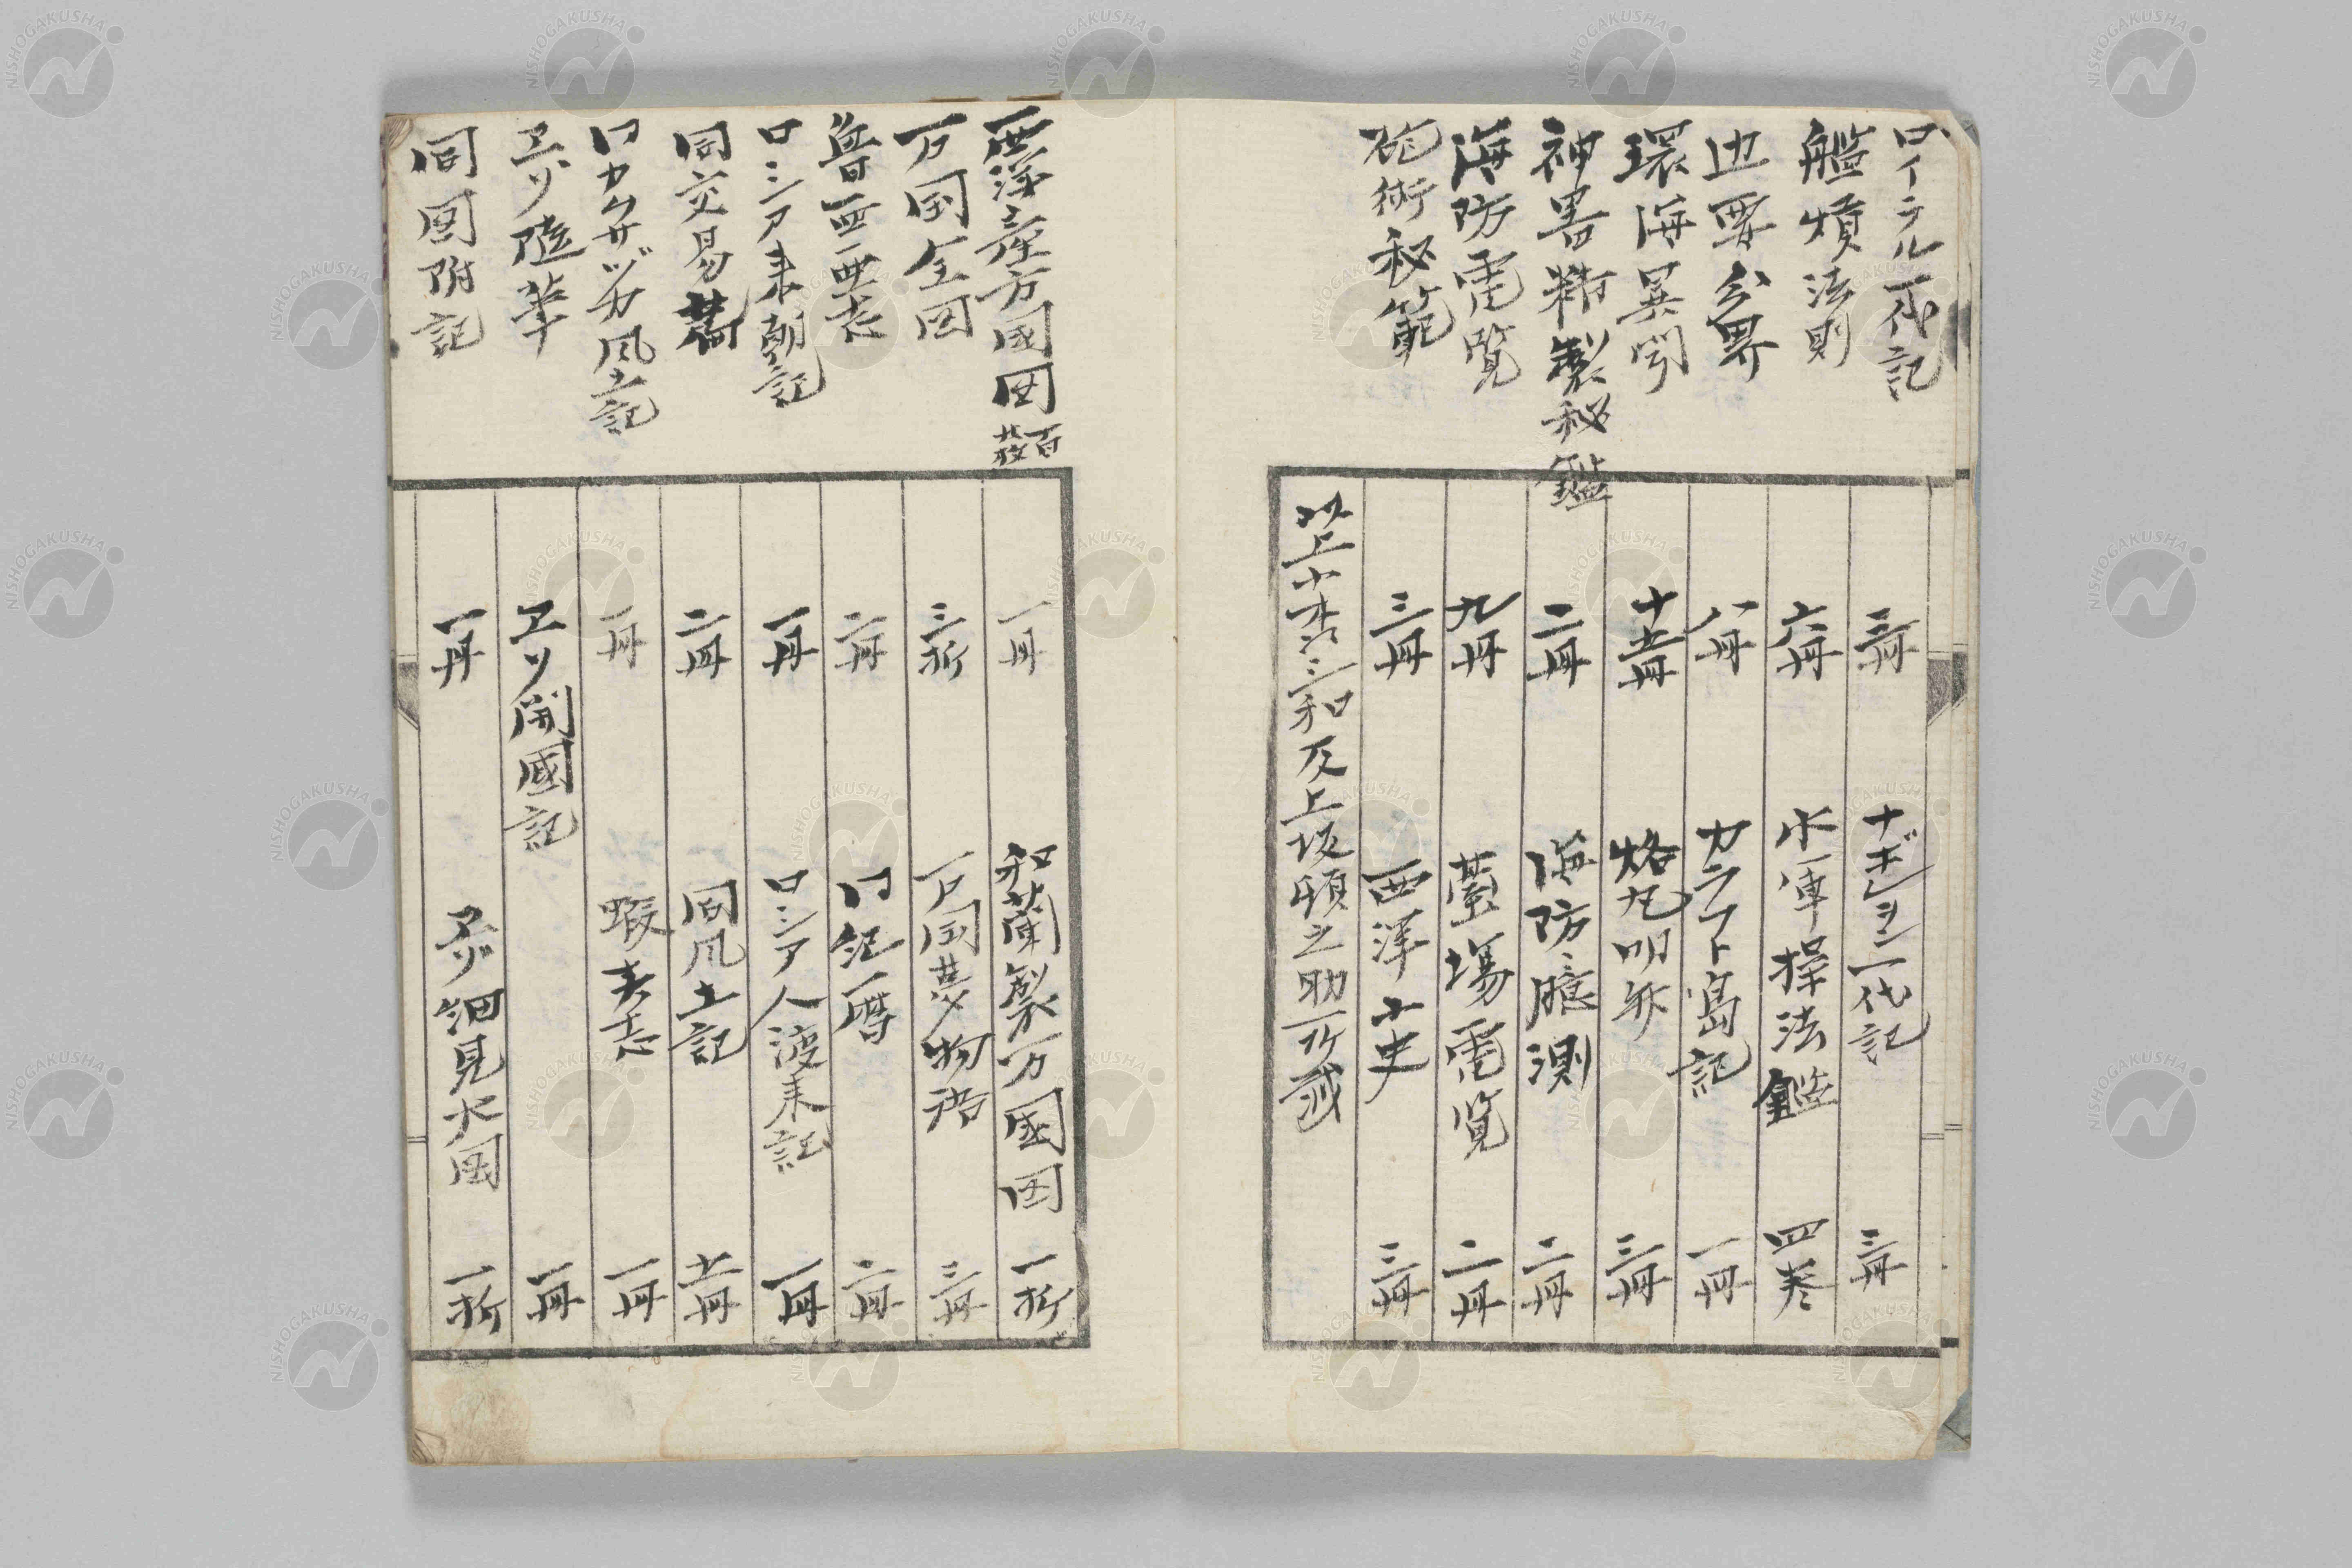 ロイテル一代記 三冊 ナポレヲン一代記 三冊
艦熕法則 六冊 水軍操法鑑 四巻
辺要分界 八冊 カラフト島記 一冊
環海異聞 十五冊 烙丸明弁 三冊
神器精製秘鑑 二冊 海防臆測 二冊
海防電覧 九冊 台場電覧 二冊
砲術秘範 三冊 西洋小史 三冊
以上 和及上坂頓之助所蔵
西洋産方國図 百廿枚 一冊 和蘭製万國図 一折
万国全図 三折 万国夢物語 三冊
魯西亜志 二冊 同紀暦 二冊
ロシア来朝記 一冊 ロシア人渡来記 一冊
同交易 二冊 同風土記 十一冊
同カムサヅカ風土記 一冊 蝦夷志 一冊
ヱゾ随筆 ヱソ開國記 一冊
同図附記 一冊 ヱゾ細見大図 一折
NISHOGAKUSHA